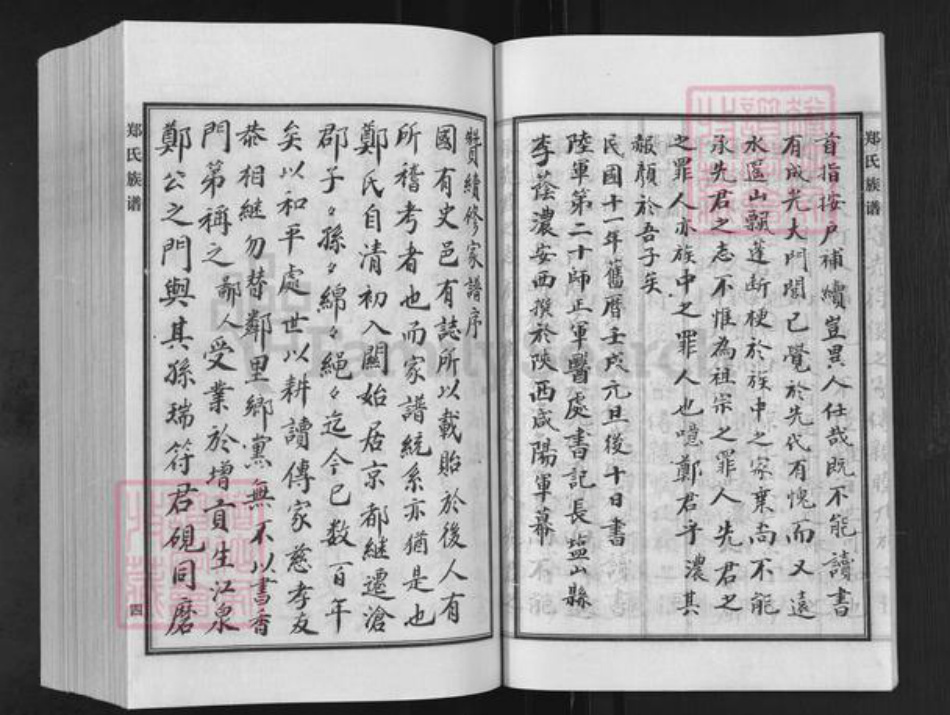 郑氏族谱
首指按户補續豈異人任哉既不能讀書
有成光大門閭已覺於先代有愧而又遠
水區山飄蓬断梗於族中之家乗尚不能
承先君之志不惟為祖宗之罪人先君之
之罪人亦族中之罪人也噫鄭君乎濃其
報顔於吾子矣
民國十一年舊暦壬戌元旦後十日書
陸軍第二十師正軍醫處書記長塩山縣
李蔭濃安西撰於陝西咸陽軍幕
續修家譜序
國有史邑有誌所以載貽於後人有
所稽考者也而家譜統系亦猶是也
鄭氏自清初入關始居京都継遷滄
郡子々孫々綿々繩々迄今已数百年
矣以和平處世以耕讀傳家慈孝友
恭相継勿替鄰里鄉黨無不以書香
門第稱之鄙人受業於增貢生江泉
鄭公之門與其孫瑞符君硯同磨
郑氏族谱
四